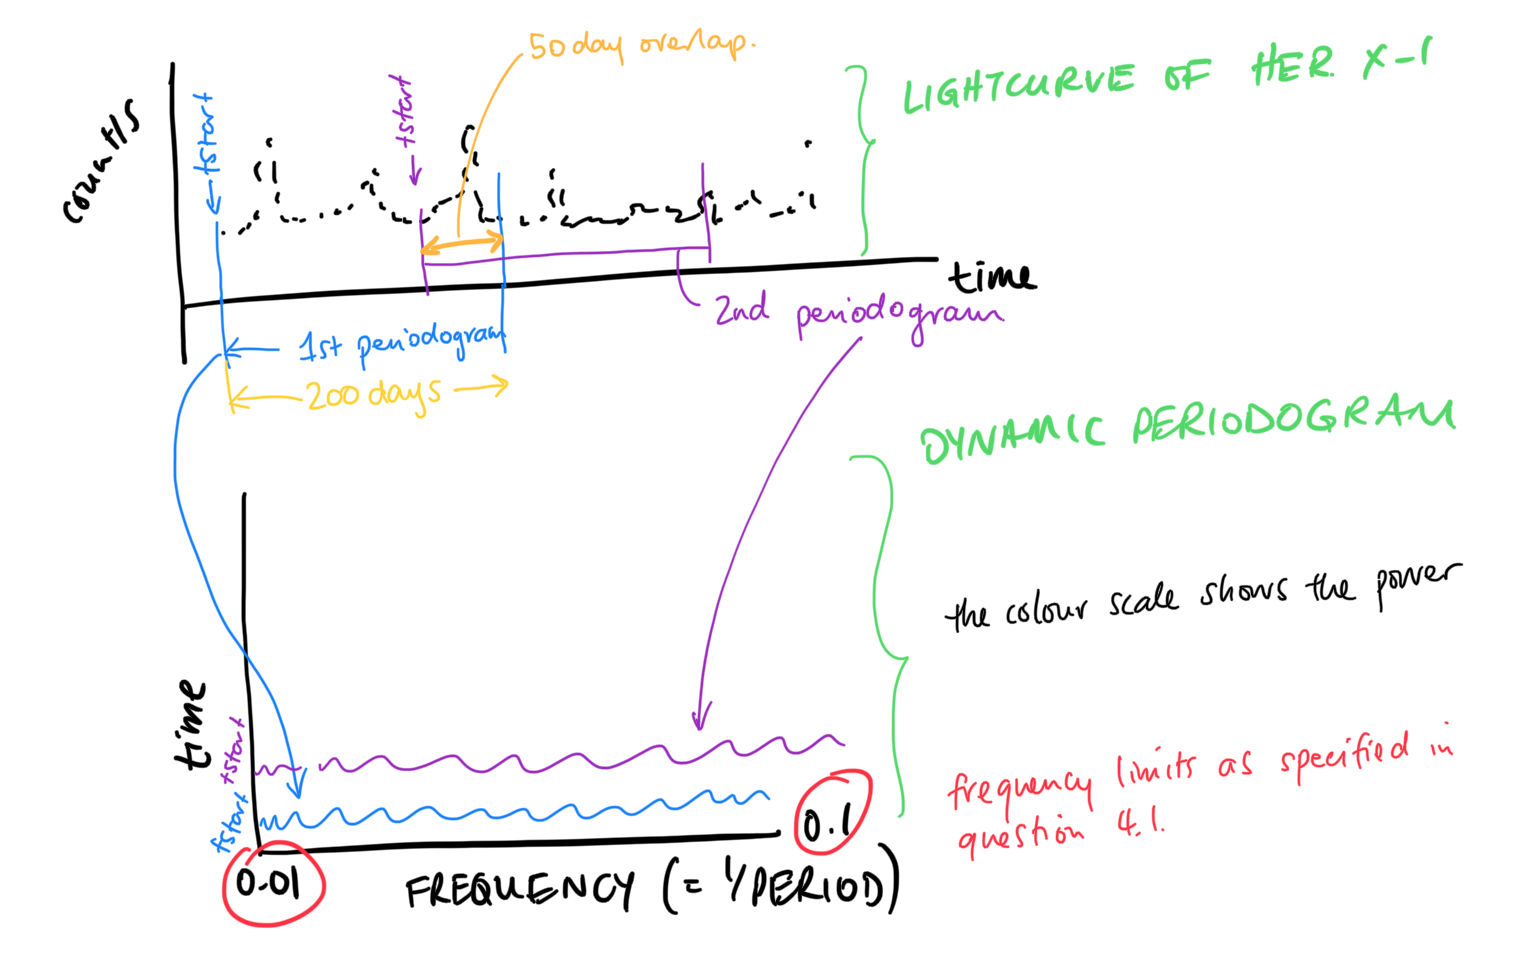 50 day overlap.
LIGHTCURVE OF HER X-1
count/s
tstart
tstart
time
2nd periodogram
1st periodogram
200 days
DYNAMIC PERIODOGRAM
the colour scale shows the power
time
tstart
tstart
frequency limits as specified in
question 4.1.
0.01
0.1
FREQUENCY (= 1/PERIOD)